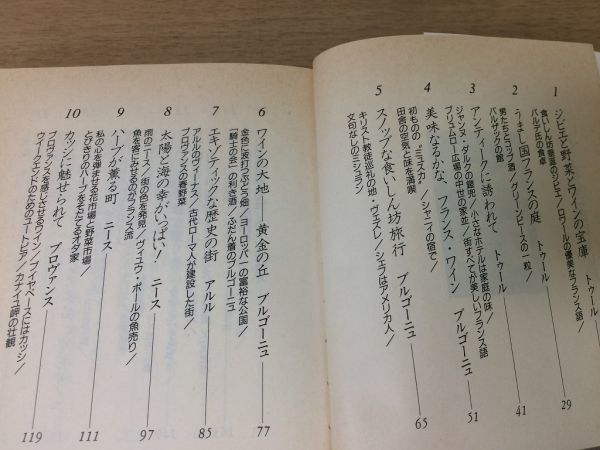 1 ジビエと野菜とワインの宝庫 トゥール 29
食いしん坊垂涎のジビエ/ロワールの優美なフランス語/
バルデ氏の食卓
2 うまし国フランスの庭 トゥール 41
男たちとコップ酒/グリーンピースの一粒/
バルザックの館
3 アンティークに誘われて トゥール 51
ジャンヌ・ダルクの鎧兜/小さなホテルは家庭の味/
プリュムロー広場の中世の家並/街すべてが美しいフランス語
4 美味なるかな、フランス・ワイン ブルゴーニュ 51
初ものの『ミュスカ』/シャニイの宿で/
田舎の空気と味を満喫
5 スノッブな食いしん坊旅行 ブルゴーニュ 65
キリスト教徒巡礼の地・ヴェズレ/シェフはアメリカ人/
文句なしのミシュラン
6 ワインの大地――黄金の丘 ブルゴーニュ 77
金色に波打つぶどう畑/ヨーロッパ一の富裕な公国/
「騎士の会」の利き酒/ふだん着のブルゴーニュ
7 エキゾティックな歴史の街 アルル 85
アルルのヴィーナス/古代ローマ人が建設した街/
プロヴァンスの春野菜
8 太陽と海の幸がいっぱい! ニース 97
雨のニース/街の色を発見/ヴィエイユ・ポールの魚売り/
魚を客にみせるのがフランス流
9 ハーブが薫る町 ニース 111
私の心を弾ませる花市場と野菜市場
とびきりのハーブをそだてるオタ家
10 カッシに魅せられて プロヴァンス 119
プロヴァンスを感じさせるワイン/ブイヤベースにはカッシ/
ウイークエンドのためのユートピア/カナイユ岬の壮観